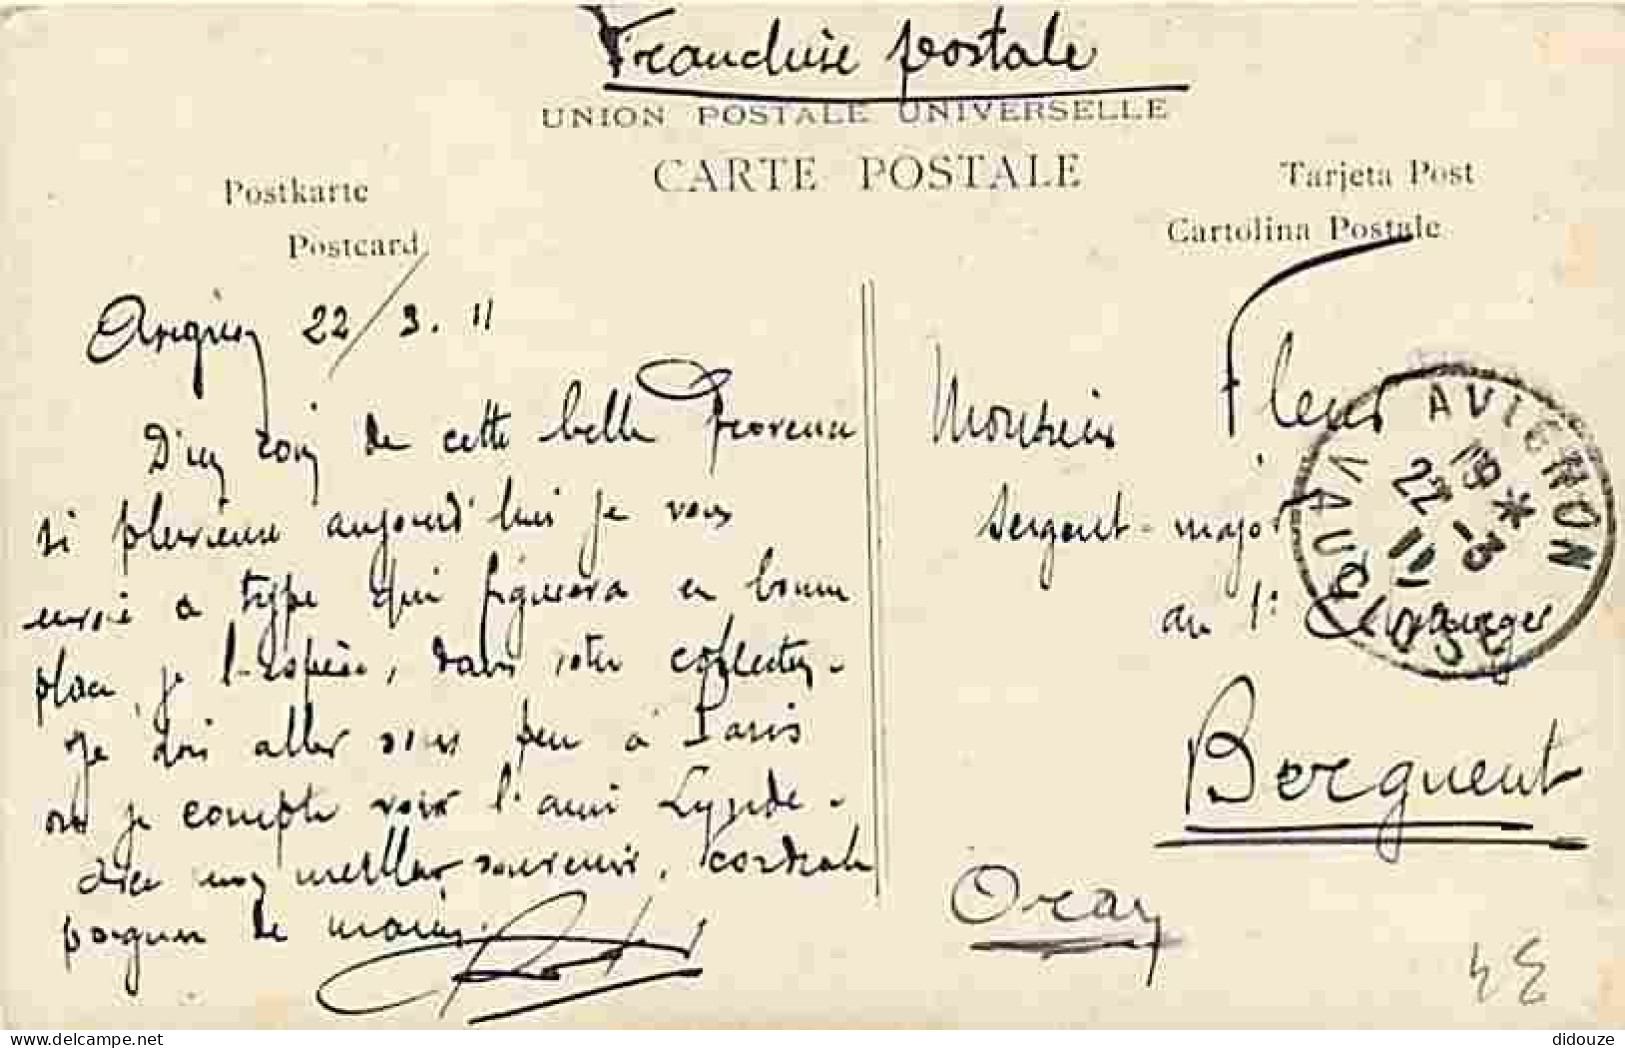 Franchise postale
UNION POSTALE UNIVERSELLE
CARTE POSTALE
Postkarte
Postcard
Tarjeta Post
Cartolina Postale
Avignon 22/3. 11
D'un coin de cette belle Provence
si pluvieuse aujourd'hui je vous
envoie a type qui figurera en bonne
place, je l'espère, dans votre collection.
Je dois aller sous peu à Paris
où je compte voir l'ami
avec mon meilleur souvenir, cordiale
poignée de mains.
Monsieur Fleur
Sergent-major
au 1er Etranger
Berguent
Oran
AVIGNON
VAUCLUSE
18 *
22 -3
11
didouze